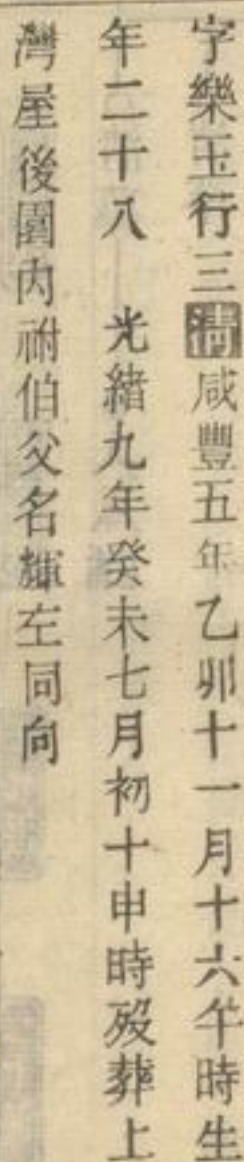 字樂玉行三清咸豐五年乙卯十一月十六午時生
年二十八 光緒九年癸未七月初十申時殁葬上
灣屋後園内祔伯父名輝左同向